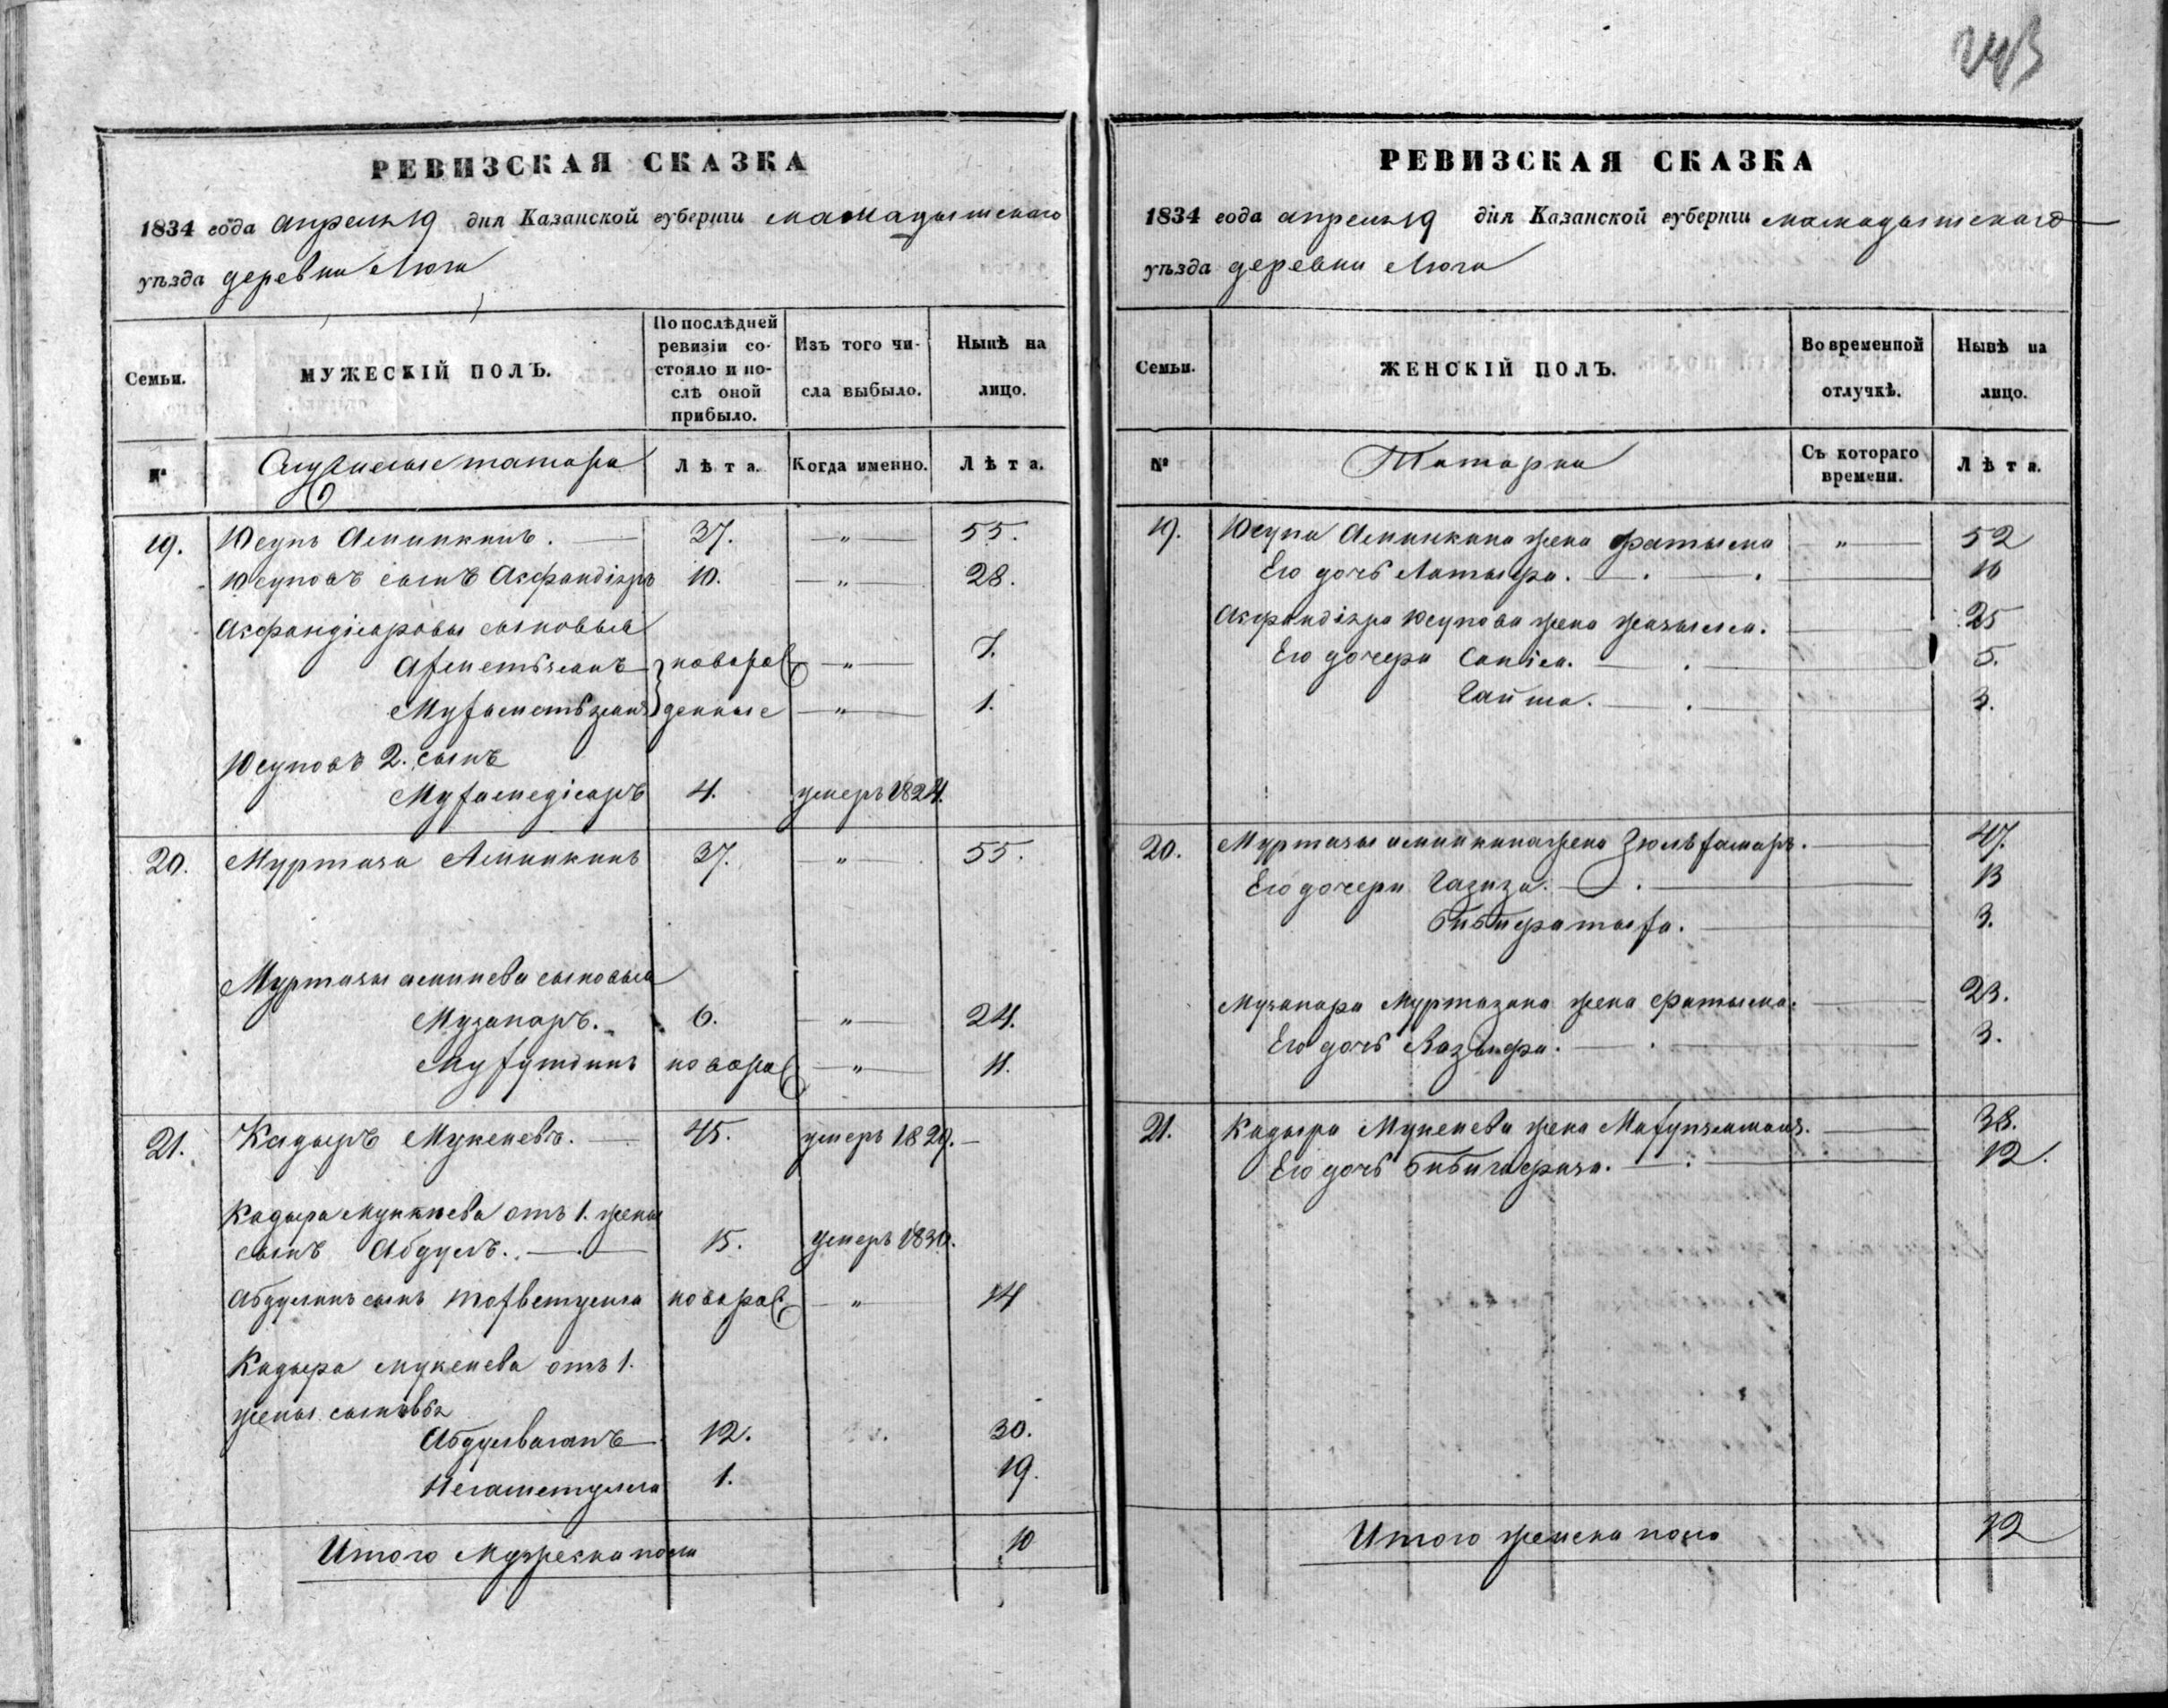 243
РЕВИЗСКАЯ СКАЗКА
1834 года апреля 19 дня Казанской губерніи мамадышскаго
уѣзда деревни Люги
Семьи.
МУЖЕСКІЙ ПОЛЪ.
По послѣдней ревизіи состояло и послѣ оной прибыло.
Изъ того числа выбыло.
Нынѣ на лицо.
№
Служилые татара
Лѣта.
Когда именно.
Лѣта.
19. Юсупъ Аминкинъ. 37. — „ — 55.
Юсуповъ сынъ Асфандіяръ 10. — „ — 28.
Асфандіяровы сыновья
Ахметьзянъ новорож — „ — 7.
Мухаметьзянъ денные — „ — 1.
Юсуповъ 2. сынъ
Мухамедіяръ 4. умеръ 1824.
20. Муртаза Аминкинъ 37. — „ — 55.
Муртазы аминева сыновья
Музапаръ. 6. — „ — 24.
новорож — „ — 11.
21. Кадыръ Мукеневъ. 45. умеръ 1829. —
Кадыра Мукнева отъ 1. жены
сынъ Абдулъ. 15. умеръ 1830.
Абдулинъ сынъ новорож — „ — 14
Кадыра мукенева отъ 1.
жены сыновья
Абдулваганъ 12. 30.
Негаметулла 1. 19.
Итого Мужеска пола 10
РЕВИЗСКАЯ СКАЗКА
1834 года апреля 19 дня Казанской губерніи мамадышскаго
уѣзда деревни Люги
Семьи.
ЖЕНСКІЙ ПОЛЪ.
Во временной отлучкѣ.
Нынѣ на лицо.
№
Татарки
Съ котораго времени.
Лѣта.
19. Юсупа Аминкина жена фатыма — „ — 52
Его дочь Латыфа. 16
Асфандіяра Юсупова жена 25
Его дочери Саніа. 5.
Гайша. 3.
20. Муртазы аминкина жена Зюльхамаръ. 47.
Его дочери Газиза. 13
3.
Музапара Муртазина жена фатыма. 23.
Его дочь 3.
21. Кадыра Мукенева жена 38.
Его дочь 12.
Итого женска пола 12